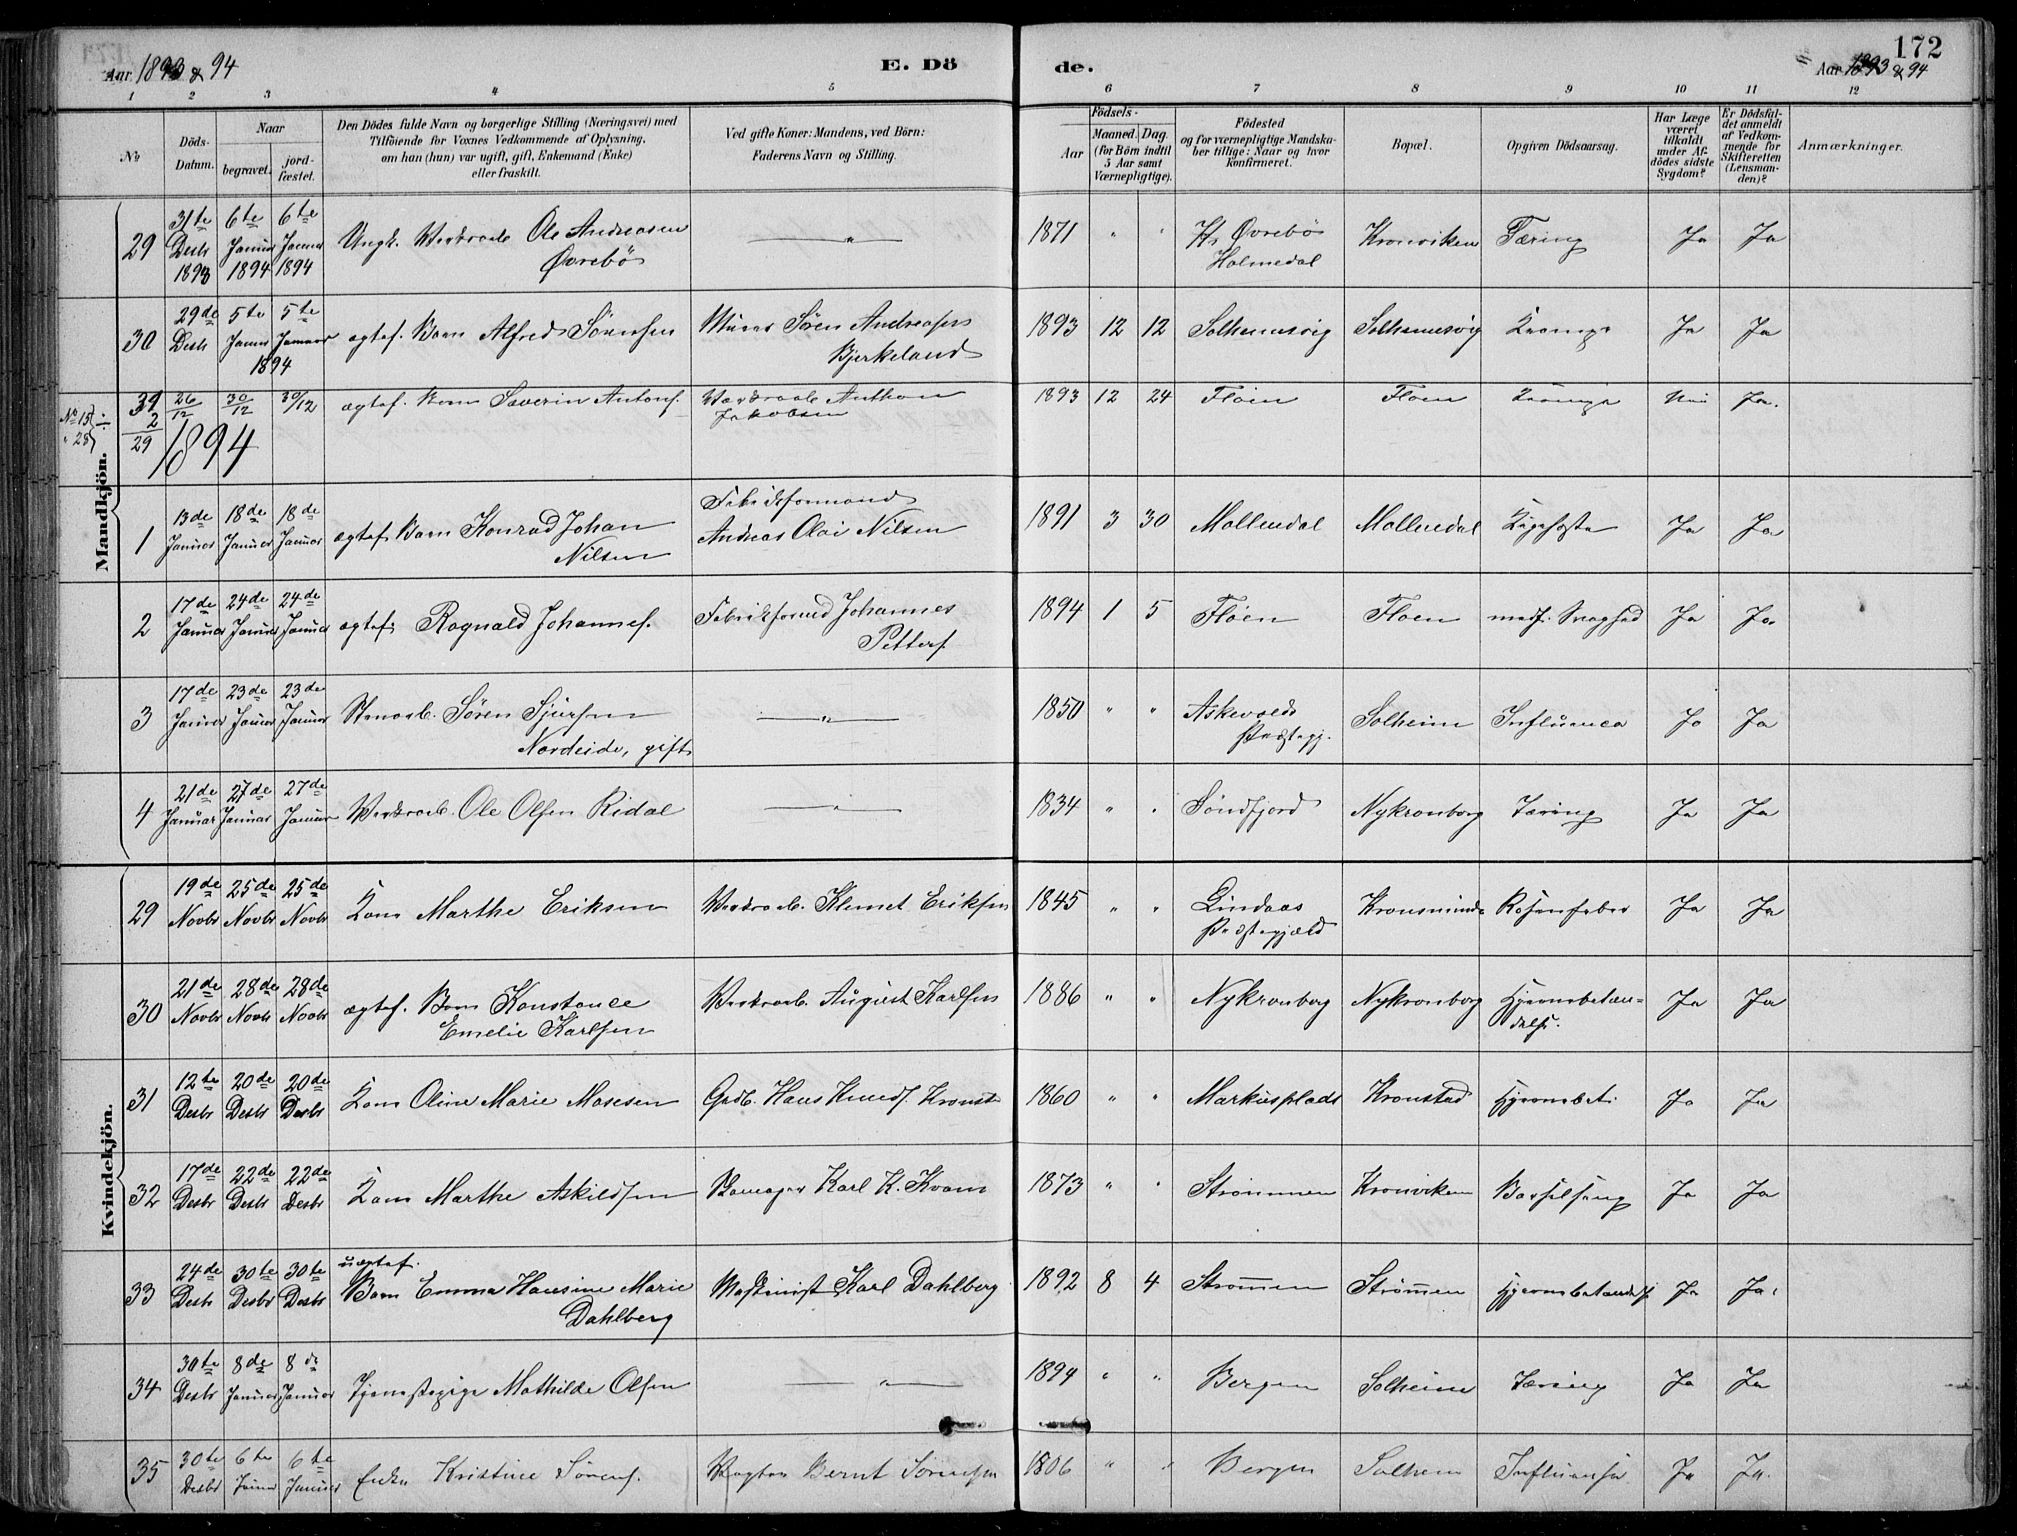 Aar 1893 & 94
E. Dö
de.
172
Aar 1893 & 94
1 2 3 4 5 6 7 8 9 10 11 12
No
Döds-Datum.
Naar
begravet.
jordfæstet.
Den Dödes fulde Navn og borgerlige Stilling (Næringsvei) med
Tilföiende for Voxnes Vedkommende af Oplysning,
om han (hun) var ugift, gift, Enkemand (Enke)
eller fraskilt.
Ved gifte Koner: Mandens, ved Börn:
Faderens Navn og Stilling.
Födsels-
Aar
Maaned. Dag.
(for Börn indtil
5 Aar samt
Værnepligtige).
Födested
og for værnepligtige Mandskaber tillige: Naar og hvor
Konfirmeret.
Bopæl.
Opgiven Dödsaarsag.
Har Læge
været
tilkaldt
under Afdödes sidste
Sygdom?
Er Dödsfaldet anmeldt
af Vedkommende for
Skifteretten
(Lensmanden)?
Anmærkninger.
Mandkjön.
29 31te Desbr 1893 6te Januar 1894 6te Januar 1894 Ungk. Værksarb. Ole Andreasen Øvrebö " 1871 " " Øvrebö Holmedal Kronviken Tæring Ja Ja
30 29de Desbr 5te Januar 5te Januar 1894 ægtef. Barn Alfred Sörensen Murer Sören Andreasen Bjerkeland 1893 12 12 Solheimsvig Solheimsvig Krampe Ja Ja
No 15 " 28 ÷ 31 2 29 26/12 30/12 30/12 ægtef. Barn Severin Antons. Værksarb Anthon Jakobsen 1893 12 24 Flöen Floen Krampe Nei Ja.
1894
1 13de Januar 18de Januar 18de Januar ægtef. Barn Konrad Johan Nilsen Fabrikformand Andreas Olai Nilsen 1891 3 30 Mollendal Mollendal Kighoste Ja Ja
2 17de Januar 24de Januar 24de Januar ægtef. Ragnald Johannes. Fabrikformd Johannes Petters. 1894 1 5 Flöen Floen medf. Svaghed Ja Ja
3 17de Januar 23de Januar 23de Januar Stenarb. Sören Sjursen Nordeide, gift " 1850 " " Askevolds Præstegj. Solheim Influenca Ja Ja
4 21de Januar 27de Januar 27de Januar Værksarb. Ole Olsen Ridal " 1834 " " Söndfjord Nykronborg Tæring Ja Ja
Kvindekjön.
29 19de Novbr 25de Novbr 25de Novbr Kone Marthe Eriksen Værksarb. Klemet Eriksen 1845 " " Lindaas Præstegjæld Kronsminde Rosenfeber Ja Ja
30 21de Novbr 28de Novbr 28de Novbr ægtef. Barn Konstance Emelie Karlsen Værksarb. August Karlsen 1886 " " Nykronborg Nykronborg Hjernebetændelse. Ja Ja
31 12te Desbr 20de Desbr 20de Desbr Kone Oline Marie Mosesen Grdb. Hans Knuds. Kronst 1860 " " Markusplads Kronstad Hjernebet. Ja Ja
32 17de Desbr 22de Desbr 22de Desbr Kone Marthe Askildsen Karl K. Kvam 1873 " " Strömmen Kronviken Barselseng Ja Ja
33 24de Desbr 30te Desbr 30te Desbr uægtef. Barn Emma Hansine Marie Dahlberg Maskinist Karl Dahlberg 1892 8 4 Strömmen Strömmen Hjernebetændelse Ja Ja
34 30te Desbr 8de Januar 8de Januar Tjenestepige Mathilde Olsen " 1894 " " Bergen Solheim Tæring Ja Ja
35 30te Desbr 6te Januar 6te Januar Enke Kristine Sörens. Vægter Bernt Sörensen 1806 " " Bergen Solheim Influensa Ja Ja.